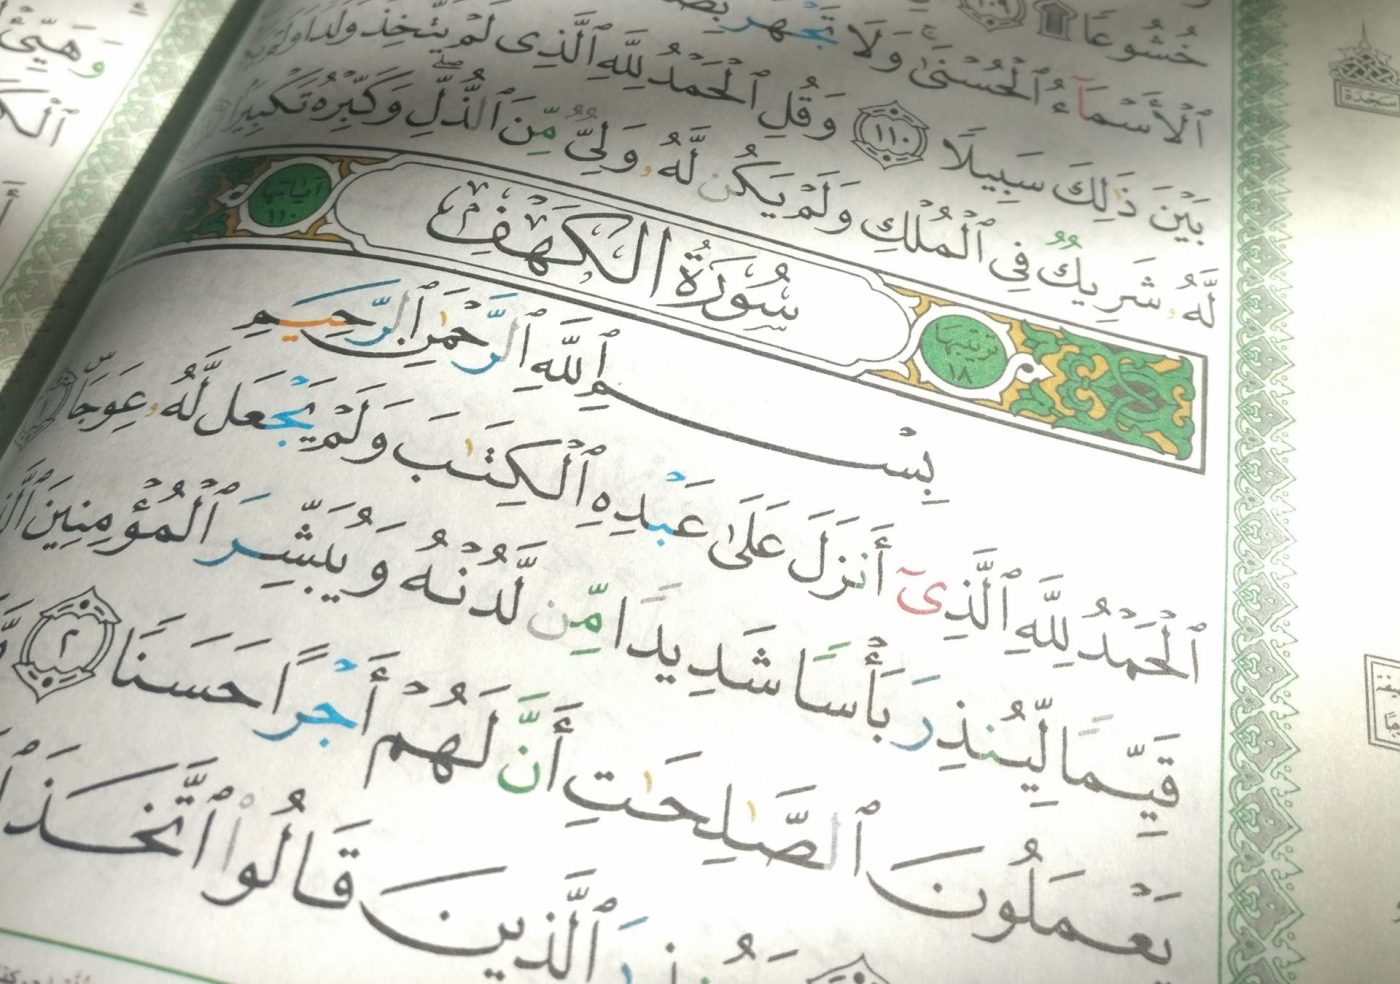 خُشُوعًا ۩ ١٠٩
ٱلْأَسْمَآءُ ٱلْحُسْنَىٰ ۚ وَلَا تَجْهَرْ
بَيْنَ ذَٰلِكَ سَبِيلًا ١١٠ وَقُلِ ٱلْحَمْدُ لِلَّهِ ٱلَّذِى لَمْ يَتَّخِذْ وَلَدًا
لَّهُۥ شَرِيكٌ فِى ٱلْمُلْكِ وَلَمْ يَكُن لَّهُۥ وَلِىٌّ مِّنَ ٱلذُّلِّ ۖ وَكَبِّرْهُ تَكْبِيرًۢا
ترتيبها ١٨ سُورَةُ الكَهْفِ آياتها ١١٠
بِسْمِ ٱللَّهِ ٱلرَّحْمَٰنِ ٱلرَّحِيمِ
ٱلْحَمْدُ لِلَّهِ ٱلَّذِىٓ أَنزَلَ عَلَىٰ عَبْدِهِ ٱلْكِتَٰبَ وَلَمْ يَجْعَل لَّهُۥ عِوَجَاۜ ١
قَيِّمًا لِّيُنذِرَ بَأْسًا شَدِيدًا مِّن لَّدُنْهُ وَيُبَشِّرَ ٱلْمُؤْمِنِينَ
يَعْمَلُونَ ٱلصَّٰلِحَٰتِ أَنَّ لَهُمْ أَجْرًا حَسَنًا ٢
ٱلَّذِينَ قَالُوا۟ ٱتَّخَذَ
وَهَيِّئْ
السجدة